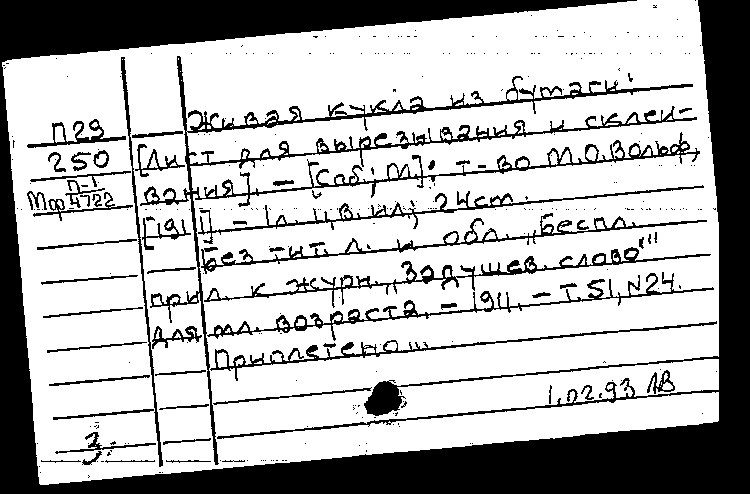 Живая кукла из бумаги:
П29
250
Мф П-1/4722
[Лист для вырезывания и склеи-
вания]. – [Спб; М]: т-во М.О.Вольф,
[1911]. – 1л. цв. ил; 24см.
Без тит. л. и обл. „Беспл.
прил. к журн. „Задушев. слово""
для мл. возраста. – 1911. – Т.51, N24.
Приплетено...
1.02.93 ЛВ
3.